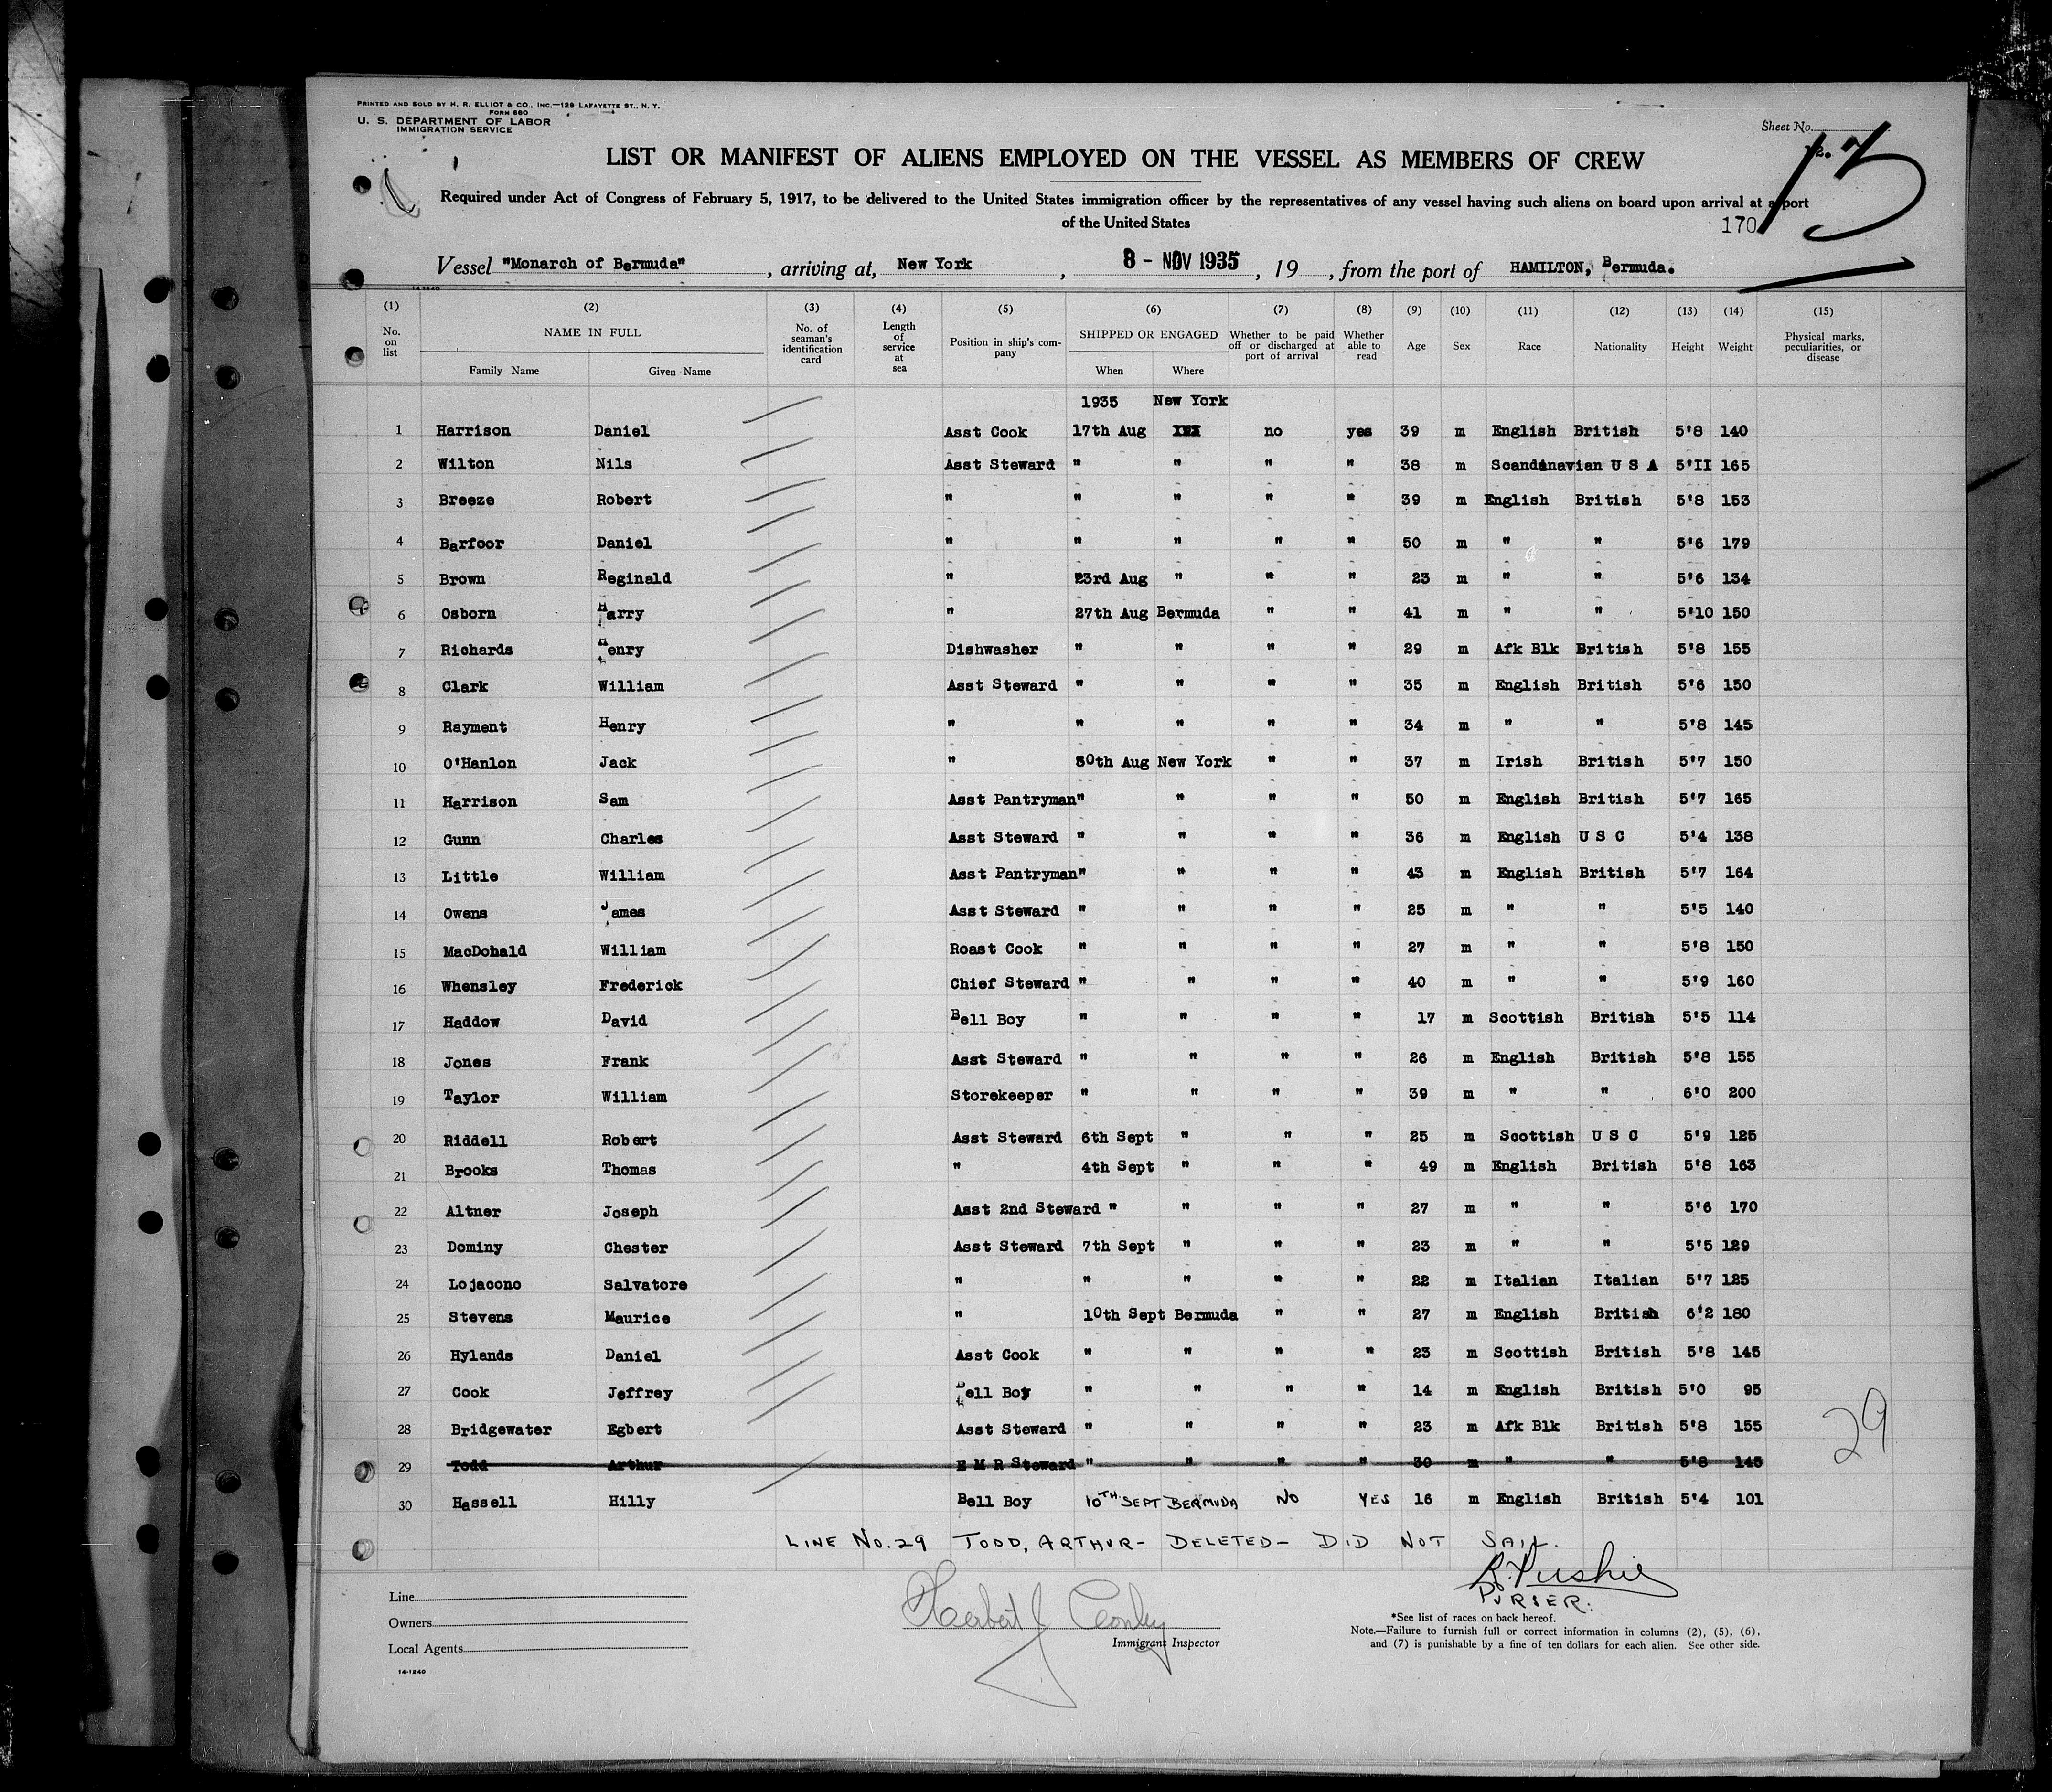 PRINTED AND SOLD BY H. R. ELLIOT & CO., INC.—129 LAFAYETTE ST., N. Y.
FORM 680
U. S. DEPARTMENT OF LABOR
IMMIGRATION SERVICE
Sheet No.
13
LIST OR MANIFEST OF ALIENS EMPLOYED ON THE VESSEL AS MEMBERS OF CREW
Required under Act of Congress of February 5, 1917, to be delivered to the United States immigration officer by the representatives of any vessel having such aliens on board upon arrival at a port
of the United States
170
Vessel "Monarch of Bermuda", arriving at, New York, 8 - NOV 1935, 19 , from the port of HAMILTON, Bermuda.
14-1240
(1) (2) (3) (4) (5) (6) (7) (8) (9) (10) (11) (12) (13) (14) (15)
No. on list NAME IN FULL Family Name Given Name No. of seaman's identification card Length of service at sea Position in ship's company SHIPPED OR ENGAGED When Where Whether to be paid off or discharged at port of arrival Whether able to read Age Sex Race Nationality Height Weight Physical marks, peculiarities, or disease
1935 New York
1 Harrison Daniel Asst Cook 17th Aug XXX no yes 39 m English British 5'8 140
2 Wilton Nils Asst Steward " " " " 38 m Scandinavian U S A 5'II 165
3 Breeze Robert " " " " " 39 m English British 5'8 153
4 Barfoor Daniel " " " " " 50 m " " 5'6 179
5 Brown Reginald " 23rd Aug " " " 23 m " " 5'6 134
6 Osborn Harry " 27th Aug Bermuda " " 41 m " " 5'10 150
7 Richards Henry Dishwasher " " " " 29 m Afk Blk British 5'8 155
8 Clark William Asst Steward " " " " 35 m English British 5'6 150
9 Rayment Henry " " " " " 34 m " " 5'8 145
10 O'Hanlon Jack " 30th Aug New York " " 37 m Irish British 5'7 150
11 Harrison Sam Asst Pantryman " " " " 50 m English British 5'7 165
12 Gunn Charles Asst Steward " " " " 36 m English U S C 5'4 138
13 Little William Asst Pantryman " " " " 43 m English British 5'7 164
14 Owens James Asst Steward " " " " 25 m " " 5'5 140
15 MacDonald William Roast Cook " " " " 27 m " " 5'8 150
16 Whensley Frederick Chief Steward " " " " 40 m " " 5'9 160
17 Haddow David Bell Boy " " " " 17 m Scottish British 5'5 114
18 Jones Frank Asst Steward " " " " 26 m English British 5'8 155
19 Taylor William Storekeeper " " " " 39 m " " 6'0 200
20 Riddell Robert Asst Steward 6th Sept " " " 25 m Scottish U S C 5'9 125
21 Brooks Thomas " 4th Sept " " " 49 m English British 5'8 163
22 Altner Joseph Asst 2nd Steward " " " " 27 m " " 5'6 170
23 Dominy Chester Asst Steward 7th Sept " " " 23 m " " 5'5 129
24 Lojacono Salvatore " " " " " 22 m Italian Italian 5'7 125
25 Stevens Maurice " 10th Sept Bermuda " " 27 m English British 6'2 180
26 Hylands Daniel Asst Cook " " " " 23 m Scottish British 5'8 145
27 Cook Jeffrey Bell Boy " " " " 14 m English British 5'0 95
28 Bridgewater Egbert Asst Steward " " " " 23 m Afk Blk British 5'8 155
29
29 Todd Arthur E M R Steward " " " " 30 m " " 5'8 145
30 Hassell Hilly Bell Boy 10TH SEPT BERMUDA NO YES 16 m English British 5'4 101
LINE NO. 29 TODD, ARTHUR - DELETED - DID NOT SAIL.
PURSER.
Line
Owners
Local Agents
14-1240
Herbert J
Immigrant Inspector
*See list of races on back hereof.
Note.—Failure to furnish full or correct information in columns (2), (5), (6),
and (7) is punishable by a fine of ten dollars for each alien. See other side.